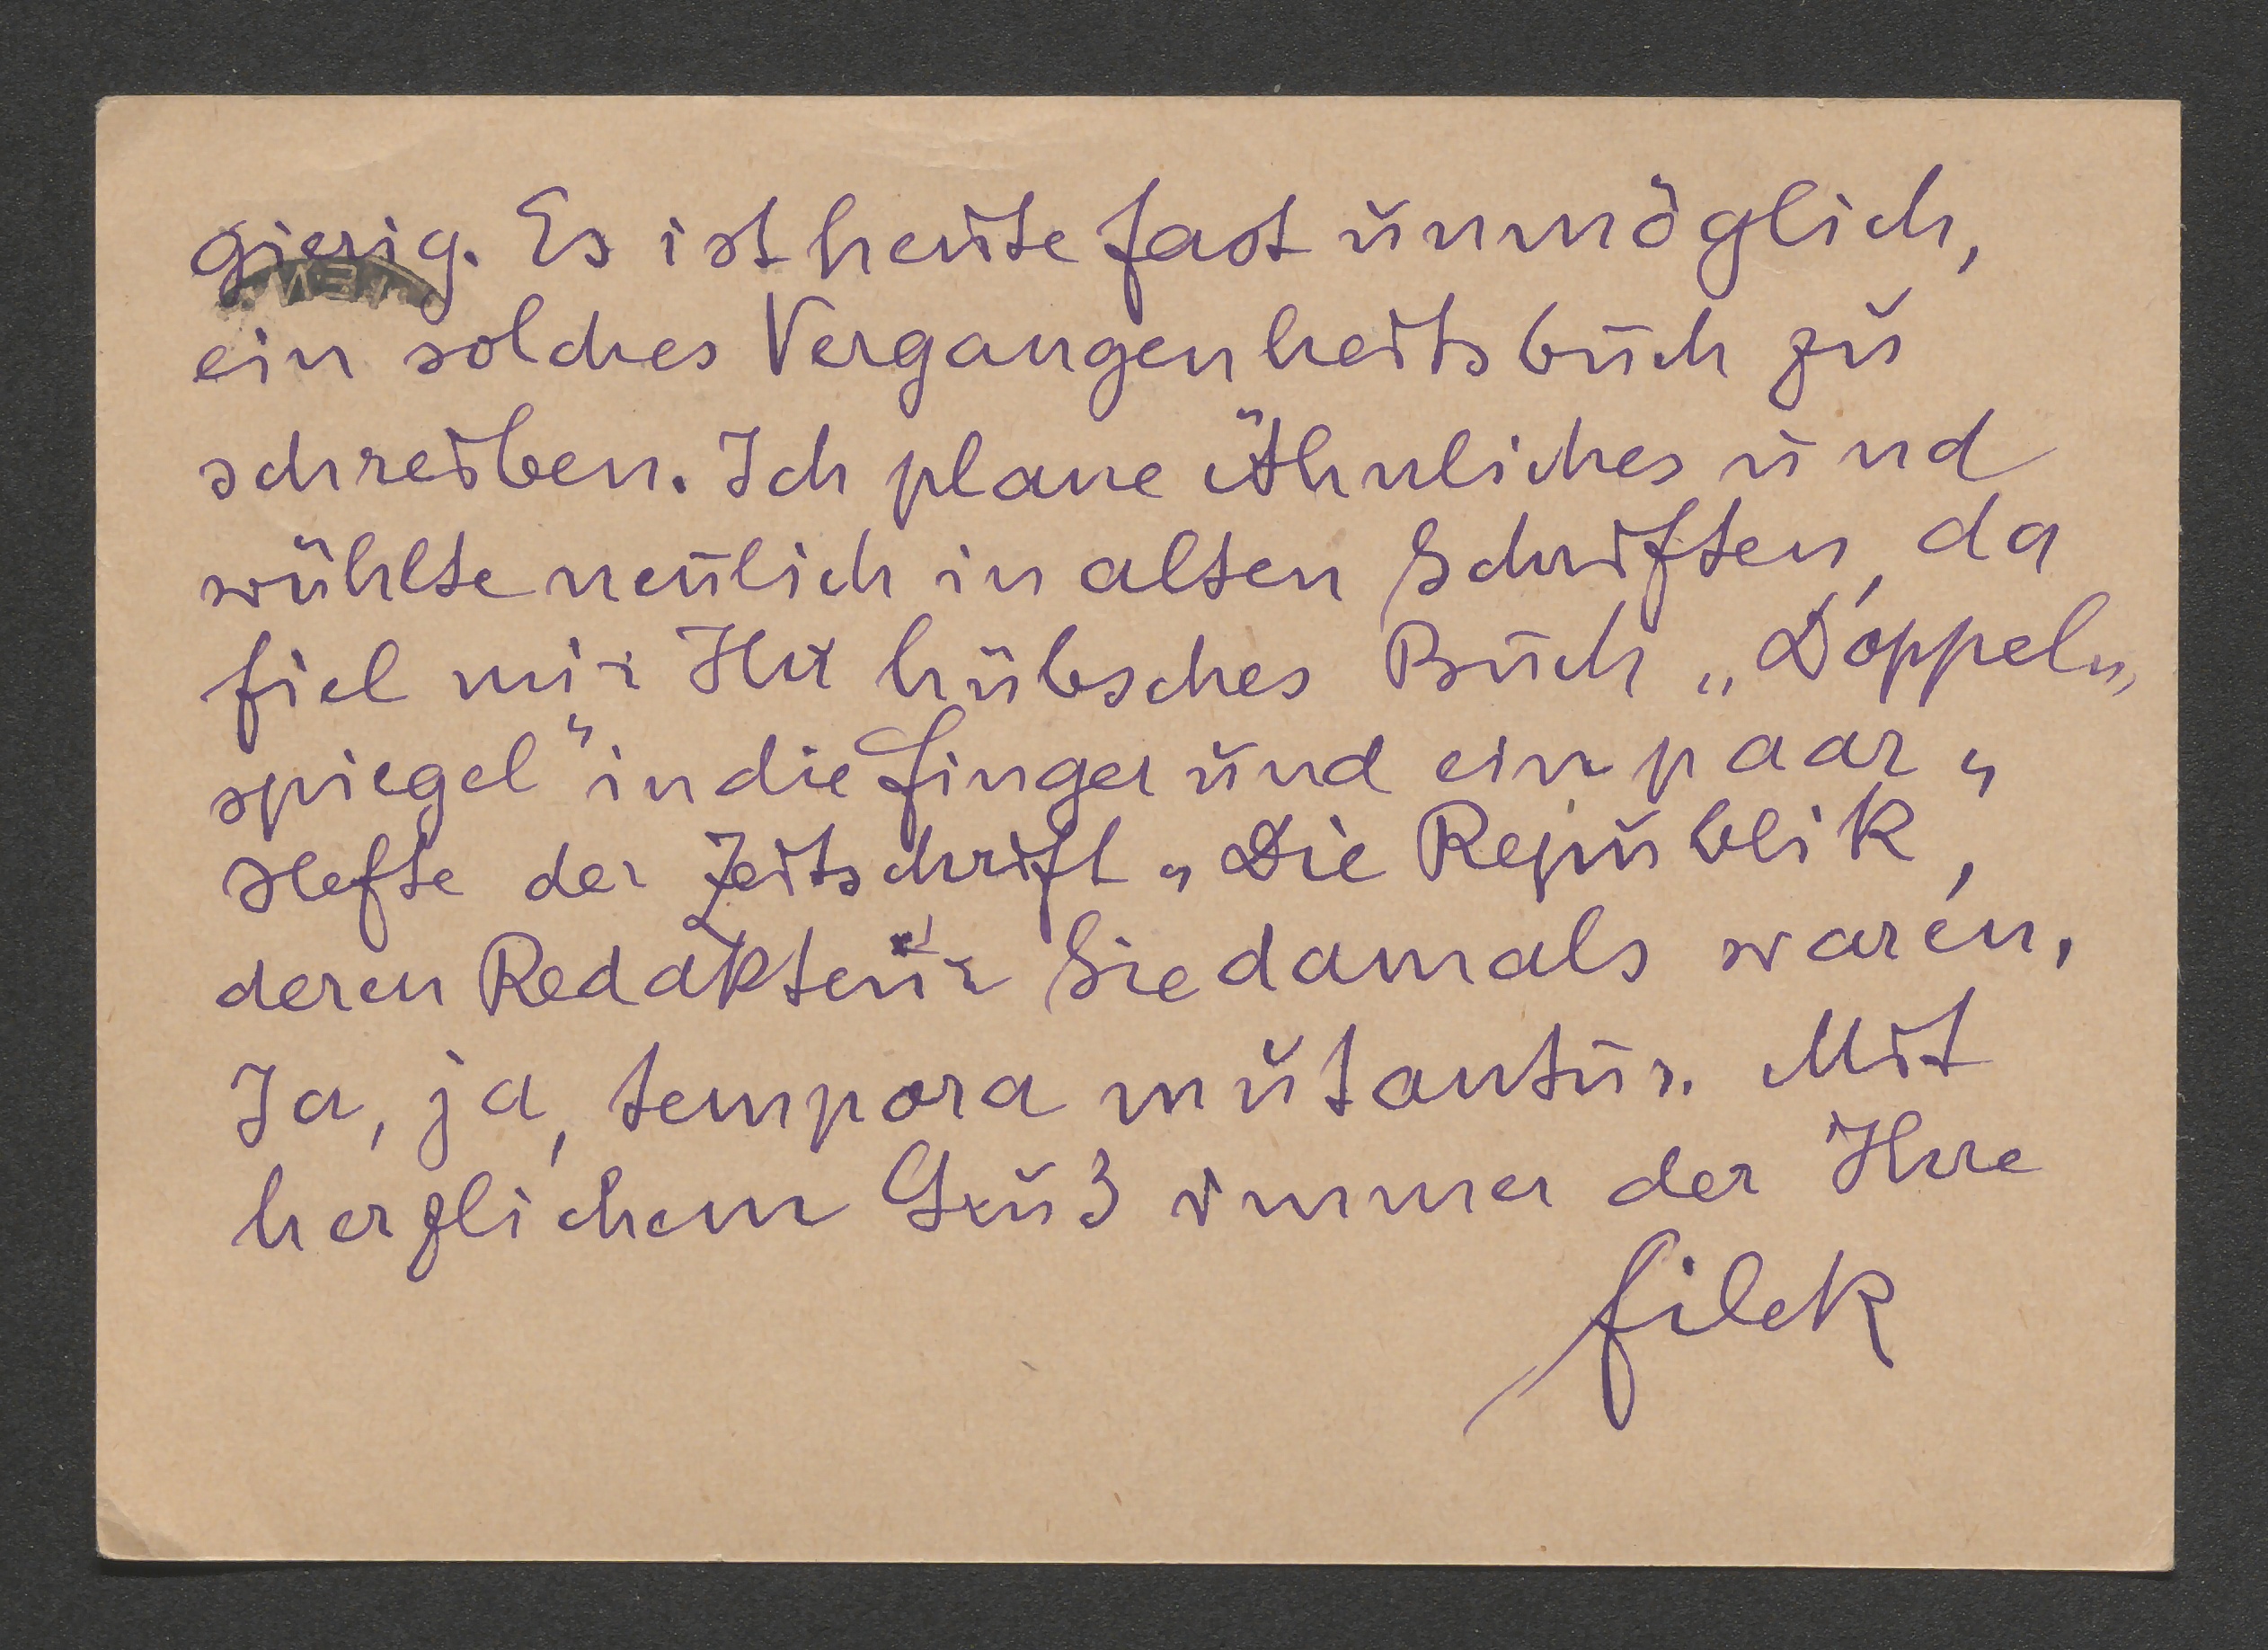 gierig. Es ist heute fast unmöglich,
ein solches Vergangenheitsbuch zu
schreiben. Ich plane Ähnliches und
wühlte neulich in alten Schriften, da
fiel mir Ihr hübsches Buch „Doppel„
spiegel" in die Finger und ein paar
Hefte der Zeitschrift „Die Republik",
deren Redakteur Sie damals waren.
Ja, ja, tempora mutantur. Mit
herzlichem Gruß immer der Ihre
Filek